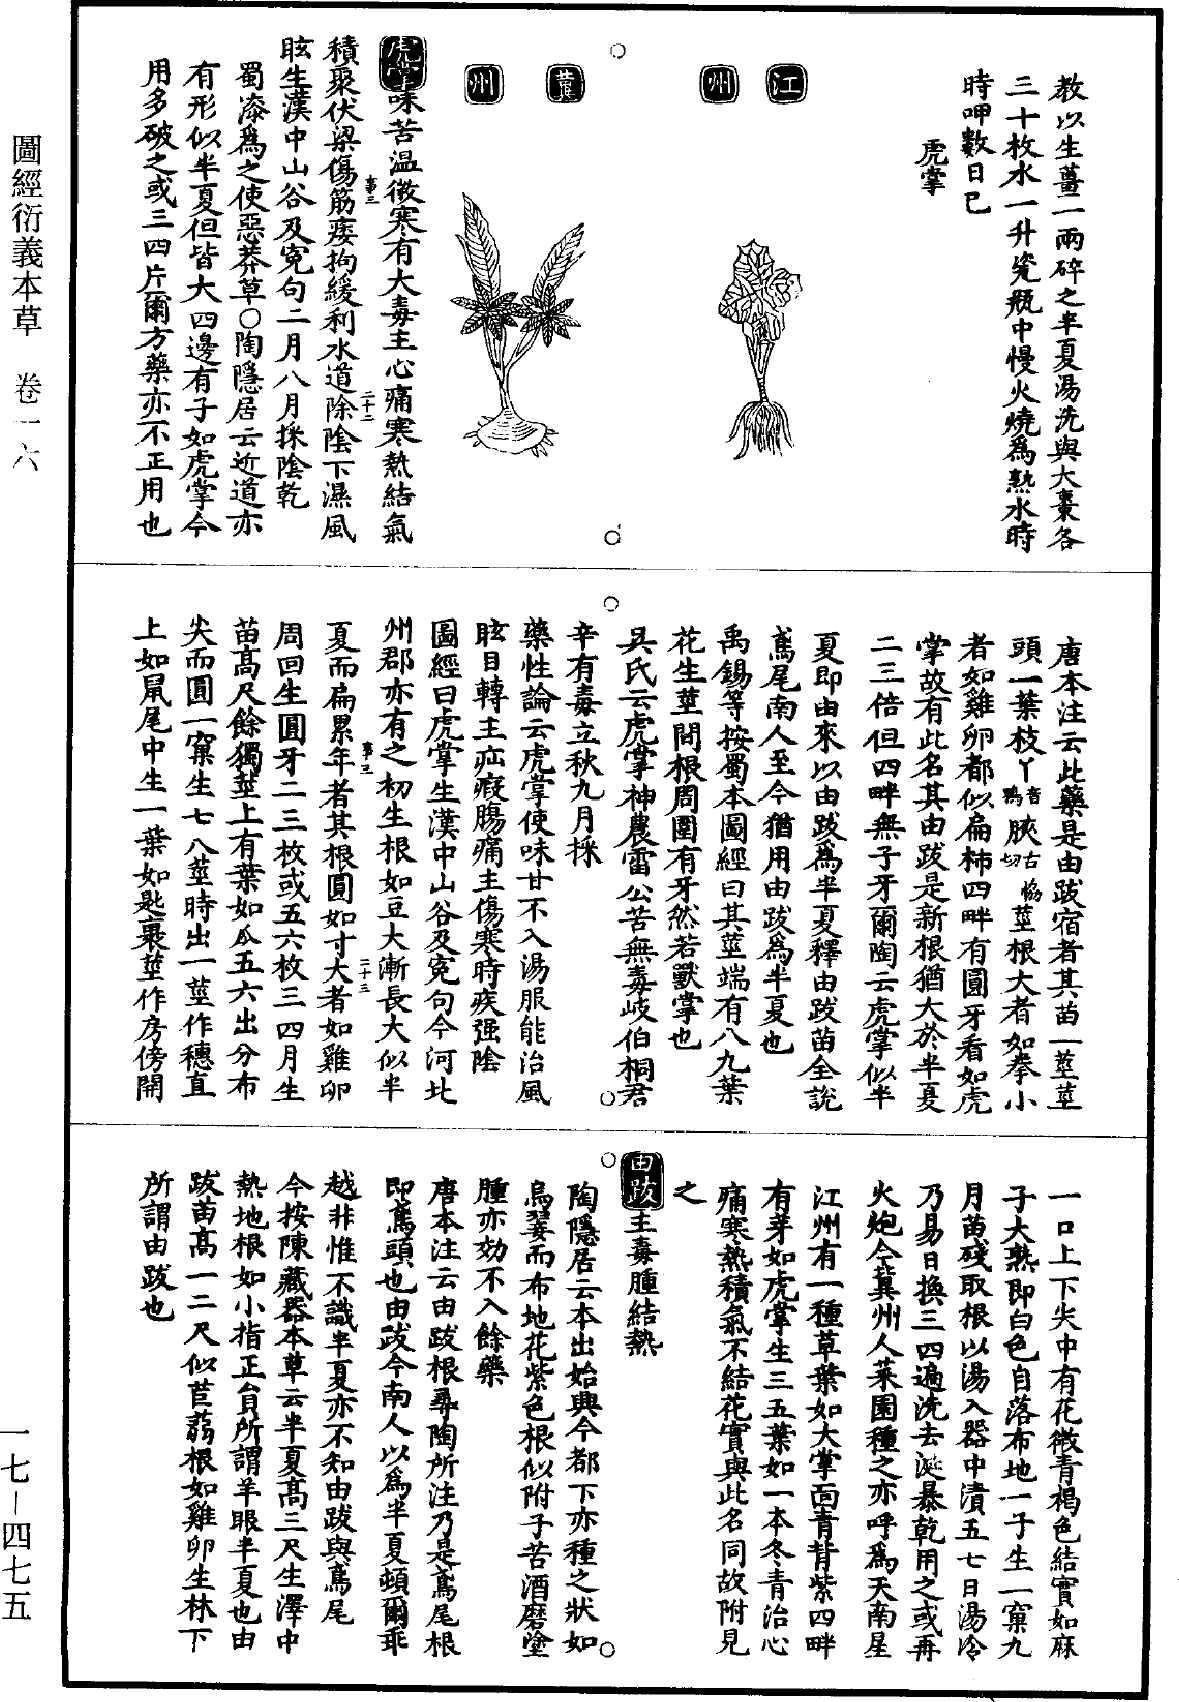 教以生薑一兩碎之半夏湯洗與大棗各
三十枚水一升瓷瓶中慢火燒爲熟水時
時呷數日已
虎掌
江州
冀州
虎掌味苦温微寒有大毒主心痛寒熱結氣
積聚伏梁傷筋痿拘緩利水道除陰下濕風
眩生漢中山谷及寃句二月八月採陰乾
蜀漆爲之使惡莽草○陶隱居云近道亦
有形似半夏但皆大四邊有子如虎掌今
用多破之或三四片爾方藥亦不正用也
唐本注云此藥是由跋宿者其苗一莖莖
頭一葉枝丫音鴨脥古協切莖根大者如拳小
者如雞卵都似扁柿四畔有圓牙看如虎
掌故有此名其由跋是新根猶大於半夏
二三倍但四畔無子牙爾陶云虎掌似半
夏即由來以由跋爲半夏釋由跋苗全說
鳶尾南人至今猶用由跋爲半夏也
禹錫等按蜀本圖經曰其莖端有八九葉
花生莖間根周圍有牙然若獸掌也
吳氏云虎掌神農雷公苦無毒岐伯桐君
辛有毒立秋九月採
藥性論云虎掌使味甘不入湯服能治風
眩目轉主疝瘕腸痛主傷寒時疾强陰
圖經曰虎掌生漢中山谷及寃句今河北
州郡亦有之初生根如豆大漸長大似半
夏而扁累年者其根圓如寸大者如雞卵
周回生圓牙二三枚或五六枚三四月生
苗高尺餘獨莖上有葉如瓜五六出分布
尖而圓一窠生七八莖時出一莖作穗直
上如鼠尾中生一葉如匙裹莖作房傍開
一口上下尖中有花微青褐色結實如麻
子大熟即白色自落布地一子生一窠九
月苗殘取根以湯入器中漬五七日湯冷
乃易日換三四遍洗去涎暴乾用之或再
火炮今冀州人菜園種之亦呼爲天南星
江州有一種草葉如大掌面青背紫四畔
有芽如虎掌生三五葉如一本冬青治心
痛寒熱積氣不結花實與此名同故附見
之
由跋主毒腫結熱
陶隱居云本出始興今都下亦種之狀如
烏翣而布地花紫色根似附子苦酒磨塗
腫亦効不入餘藥
唐本注云由跋根尋陶所注乃是鳶尾根
即鳶頭也由跋今南人以爲半夏頓爾乖
越非惟不識半夏亦不知由跋與鳶尾
今按陳藏器本草云半夏高三尺生澤中
熱地根如小指正負所謂羊眼半夏也由
跋苗高一二尺似苣蒻根如雞卵生林下
所謂由跋也
圖經衍義本草　卷一六
一七－四七五